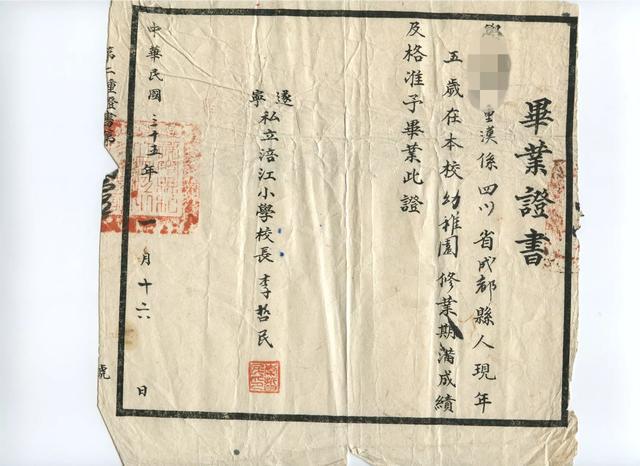 畢業證書
重漢係四川省成都縣人現年
五歲在本校幼稚園修業期滿成績
及格准予畢業此證
遂寧私立涪江小學校長李哲民
中華民國三十五年一月十六日
第二種證書第
號